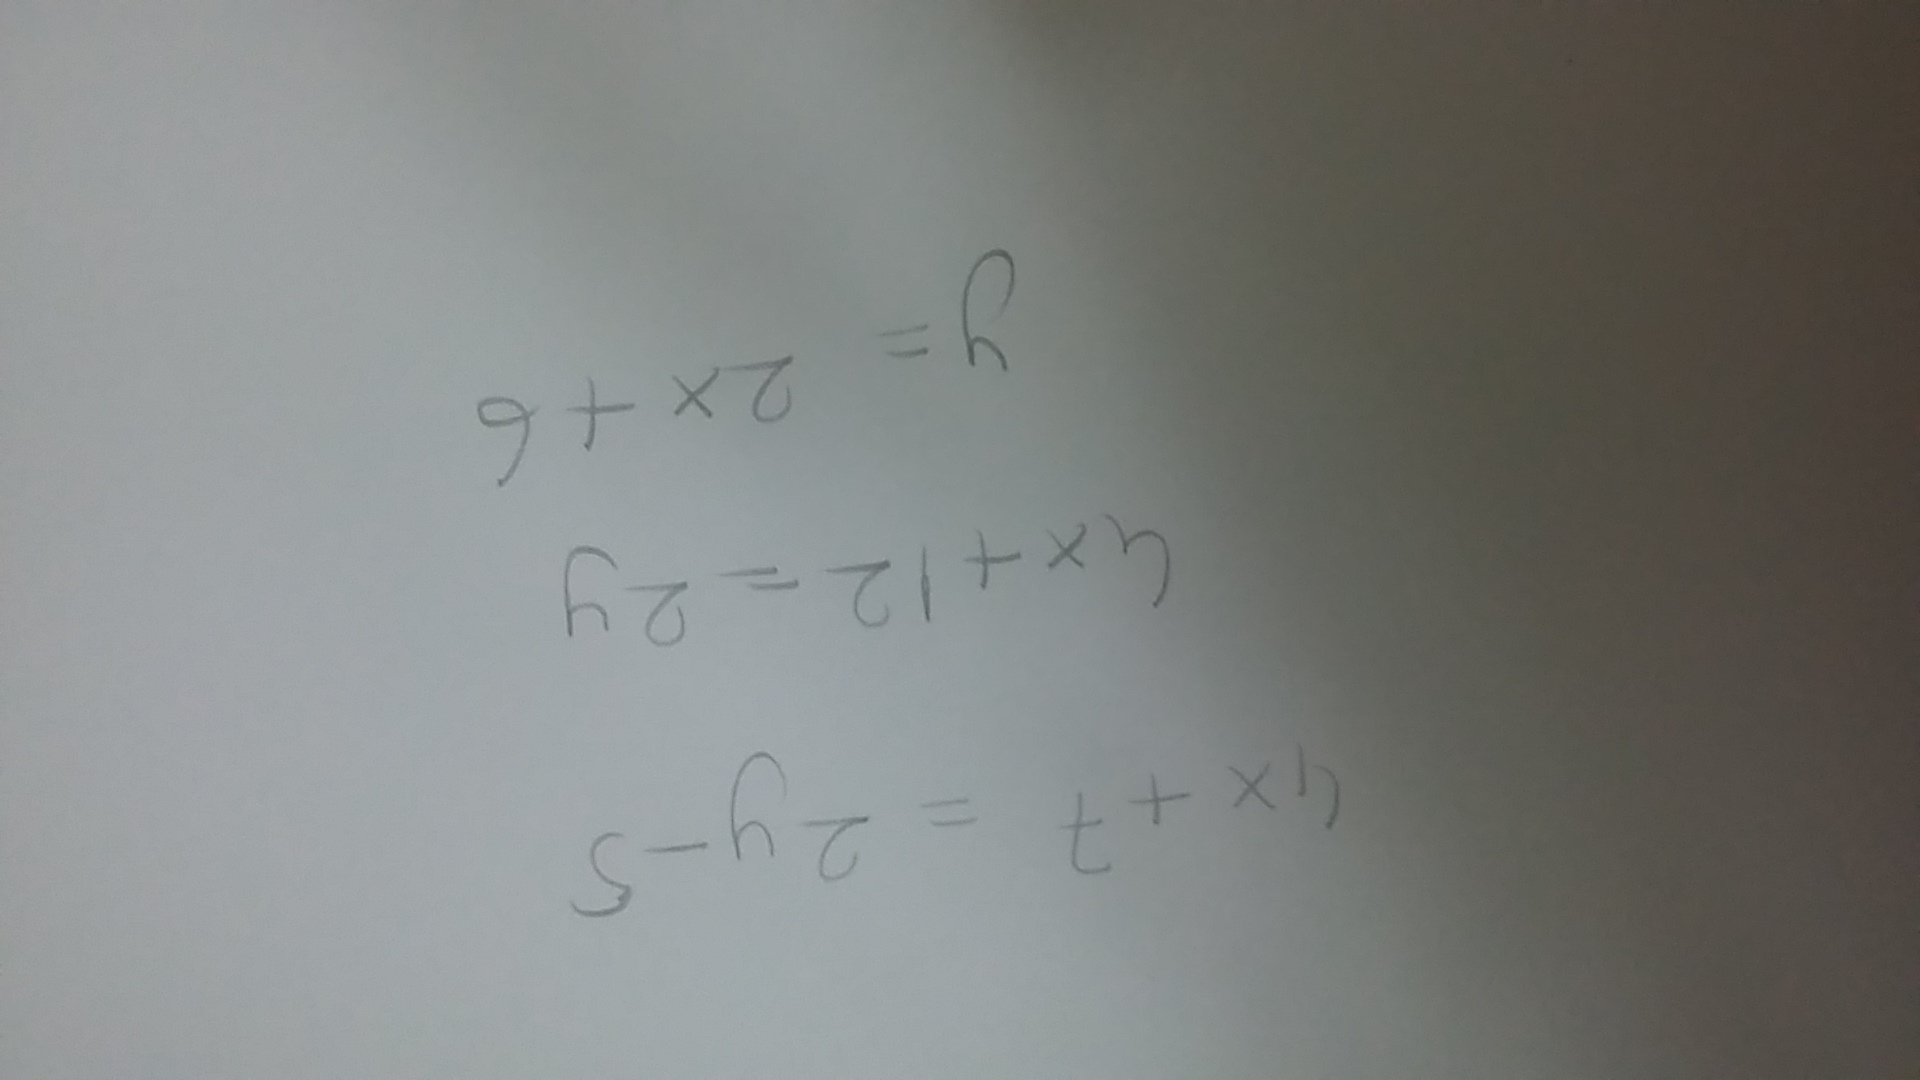 4x + 7 = 2y - 5
4x + 12 = 2y
y = 2x + 6